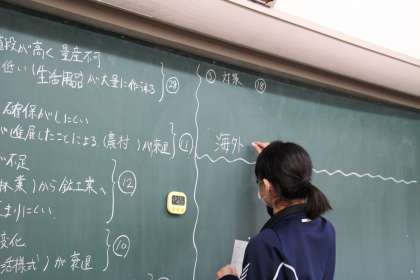 値段が高く 量産不可
低い(生活用品)が大量に作れる ㉙
確保がしにくい
が進展したことによる(農村)が衰退 ①
が不足
林業)から鉱工業へ ⑫
まりにくい
変化
活様式)が衰退 ⑩
対策 ⑱
海外